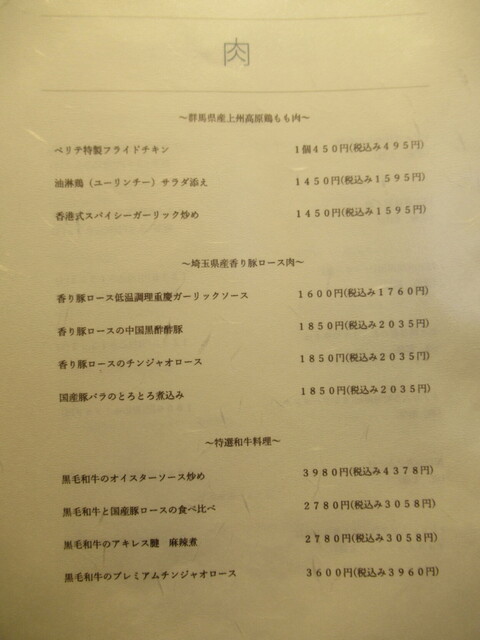 肉
～群馬県産上州高原鶏もも肉～
ベリデ特製フライドチキン 1個450円(税込み495円)
油淋鶏（ユーリンチー）サラダ添え 1450円(税込み1595円)
香港式スパイシーガーリック炒め 1450円(税込み1595円)
～埼玉県産香り豚ロース肉～
香り豚ロース低温調理重慶ガーリックソース 1600円(税込み1760円)
香り豚ロースの中国黒酢酢豚 1850円(税込み2035円)
香り豚ロースのチンジャオロース 1850円(税込み2035円)
国産豚バラのとろとろ煮込み 1850円(税込み2035円)
～特選和牛料理～
黒毛和牛のオイスターソース炒め 3980円(税込み4378円)
黒毛和牛と国産豚ロースの食べ比べ 2780円(税込み3058円)
黒毛和牛のアキレス腱　麻辣煮 2780円(税込み3058円)
黒毛和牛のプレミアムチンジャオロース 3600円(税込み3960円)